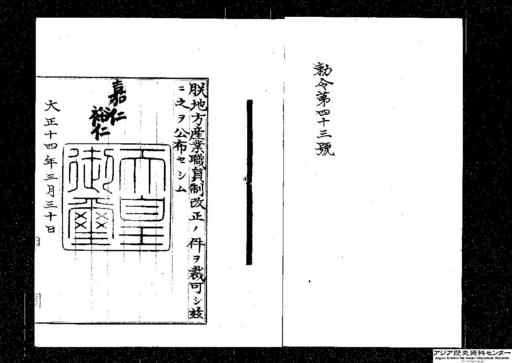 勅令第四十三號
朕地方産業職員制改正ノ件ヲ裁可シ玆
ニ之ヲ公布セシム
嘉仁
裕仁
天皇
御璽
大正十四年三月三十日
アジア歴史資料センター
Japan Center for Asian Historical Records